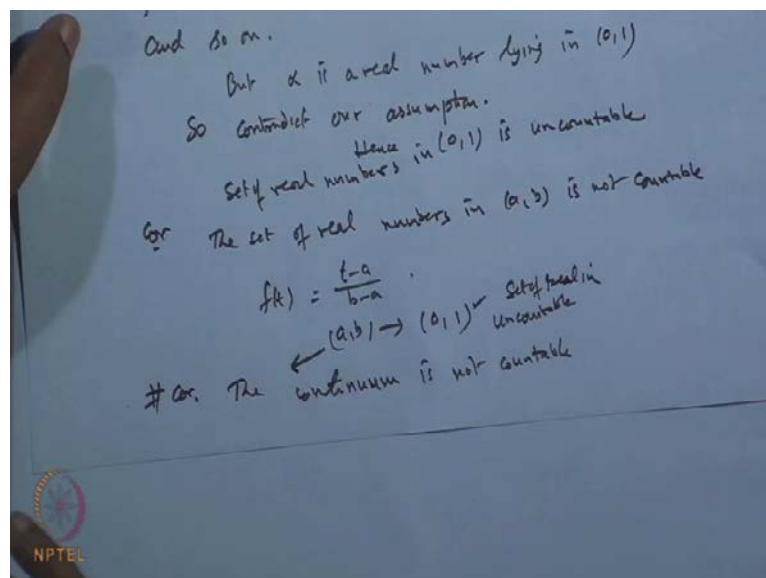 and so on.
But α is a real number lying in (0,1)
So contradict our assumption.
Hence
Set of real numbers in (0,1) is uncountable
Cor The set of real numbers in (a,b) is not countable
f(t) = t-a / b-a .
(a,b) → (0,1) Set of real in
uncountable
# Cor. The continuum is not countable
NPTEL